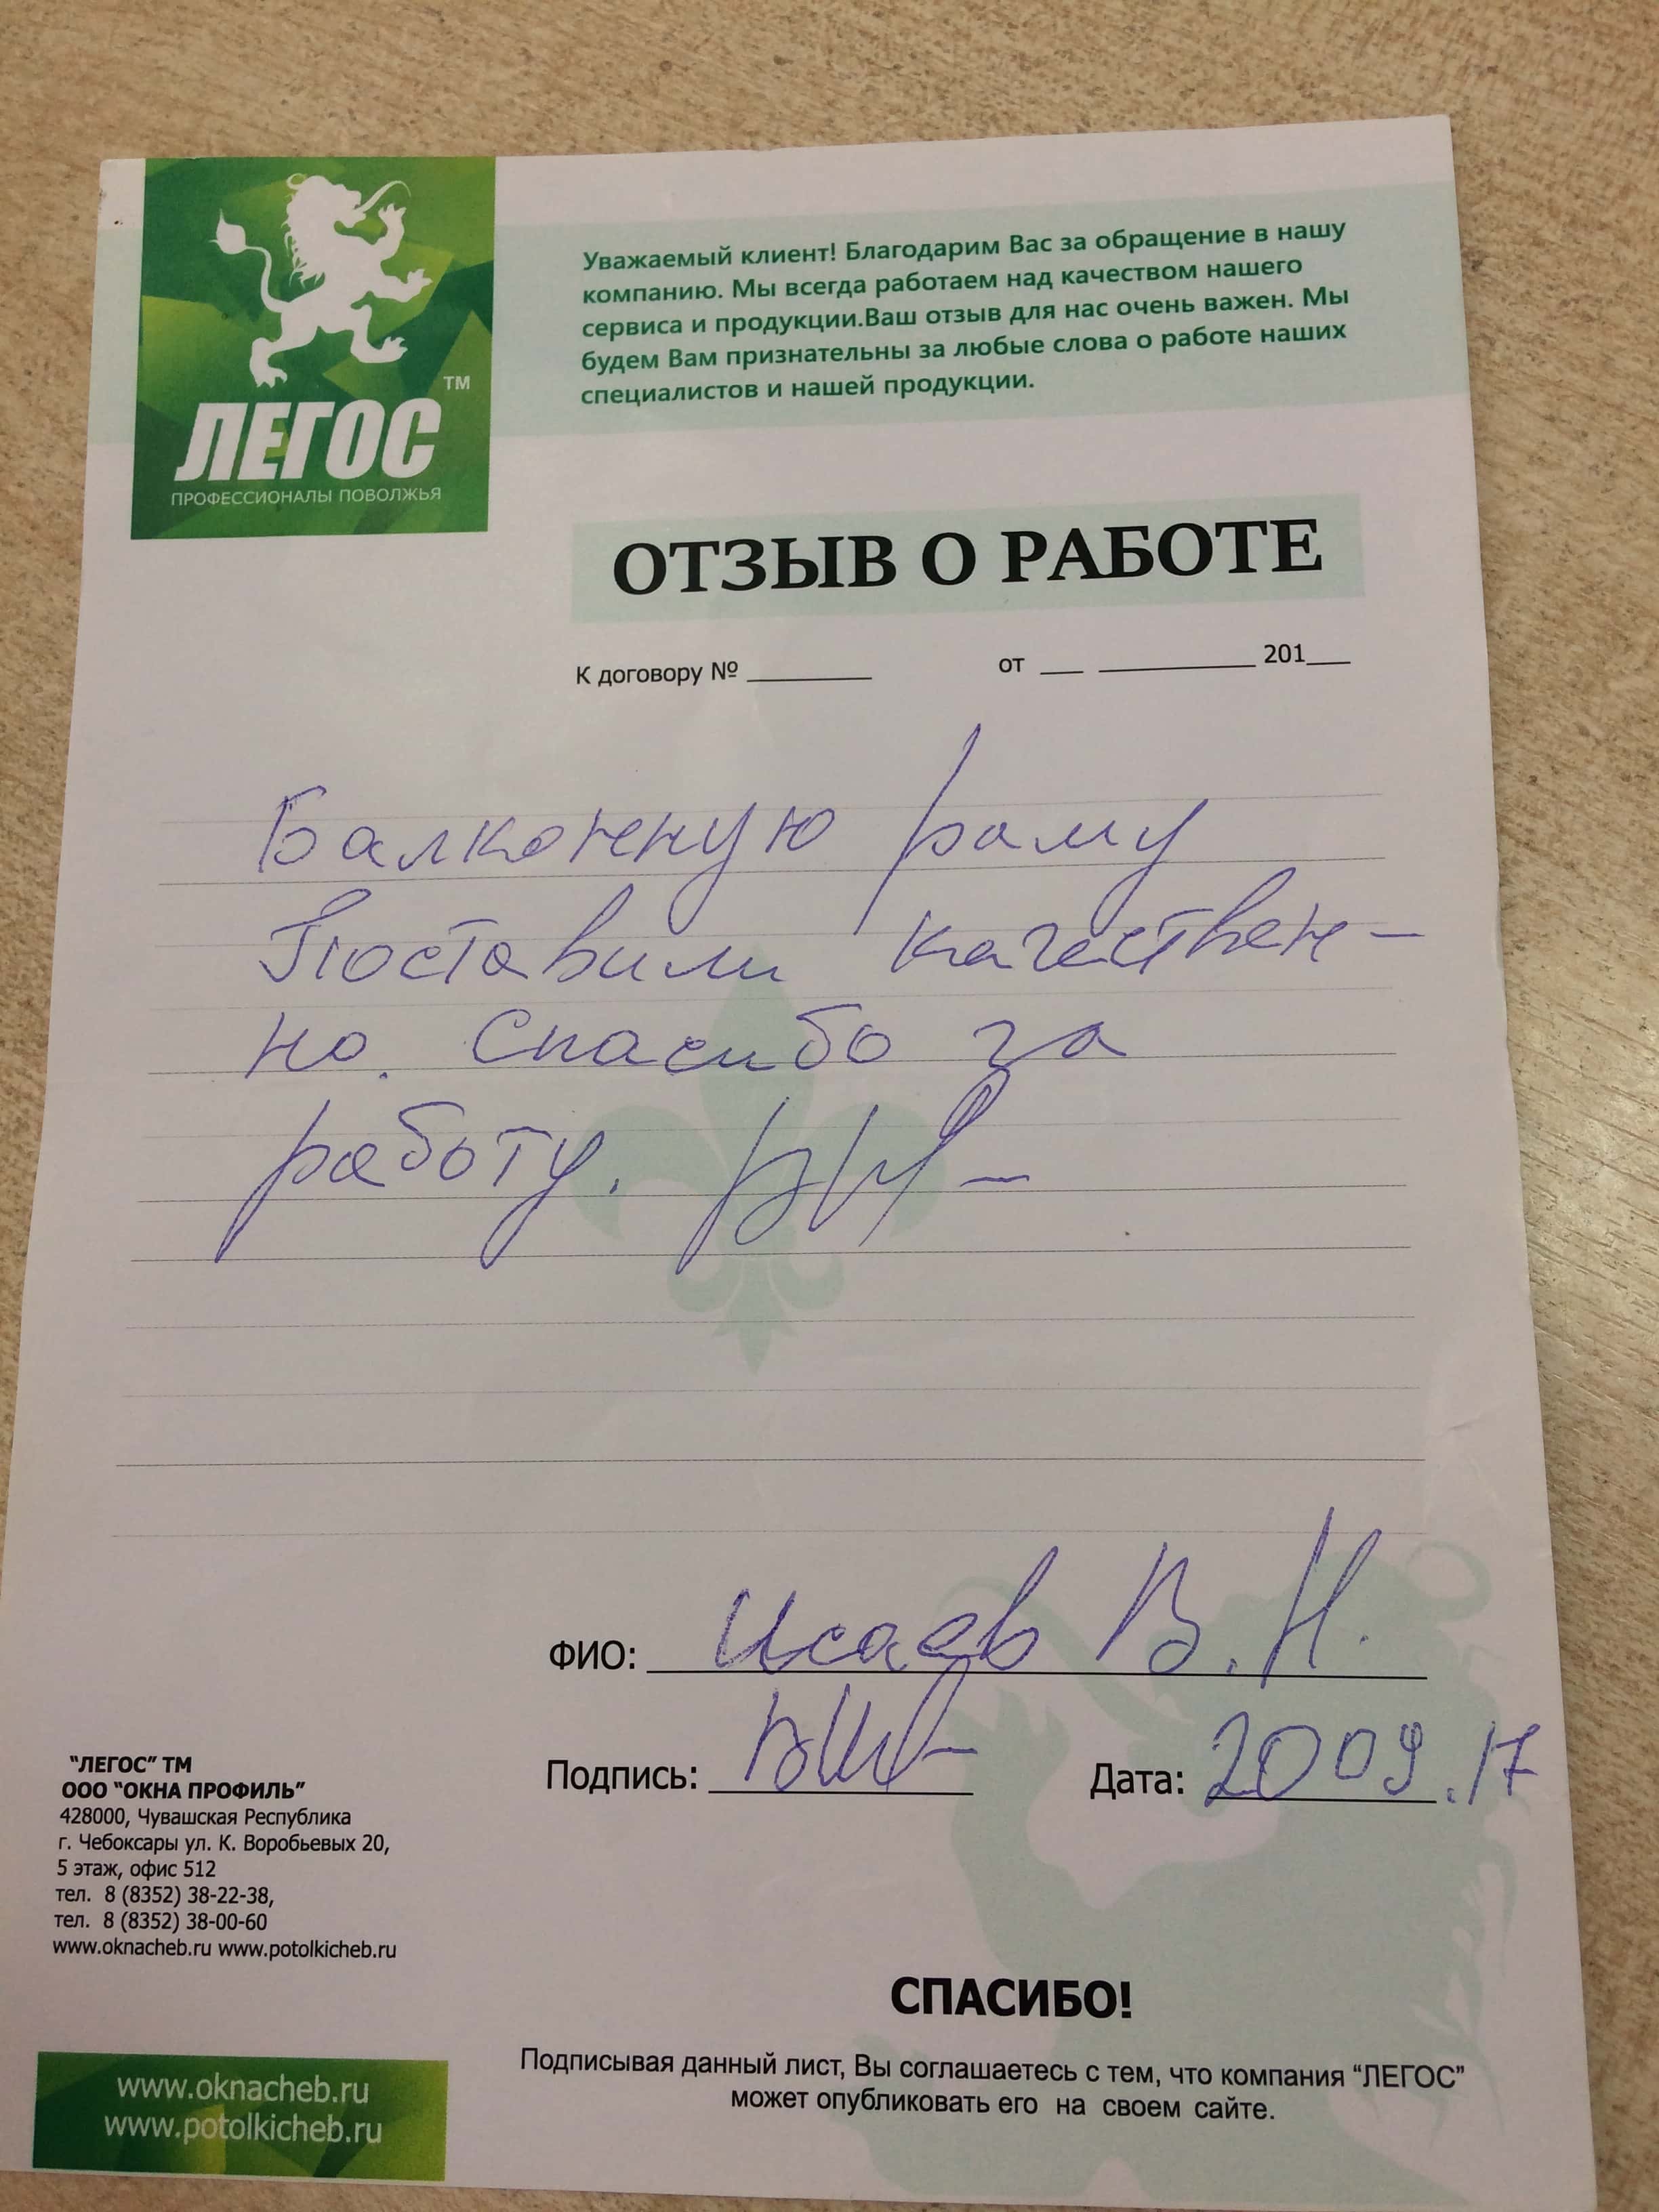 ЛЕГОС™
ПРОФЕССИОНАЛЫ ПОВОЛЖЬЯ
Уважаемый клиент! Благодарим Вас за обращение в нашу
компанию. Мы всегда работаем над качеством нашего
сервиса и продукции.Ваш отзыв для нас очень важен. Мы
будем Вам признательны за любые слова о работе наших
специалистов и нашей продукции.
ОТЗЫВ О РАБОТЕ
К договору № ________ от ___ __________ 201___
Балконную раму
Поставили качествен-
но. Спасибо за
работу.
ФИО: Исаев В.Н.
Подпись: Дата: 2009.17
"ЛЕГОС" ТМ
ООО "ОКНА ПРОФИЛЬ"
428000, Чувашская Республика
г. Чебоксары ул. К. Воробьевых 20,
5 этаж, офис 512
тел. 8 (8352) 38-22-38,
тел. 8 (8352) 38-00-60
www.oknacheb.ru www.potolkicheb.ru
СПАСИБО!
Подписывая данный лист, Вы соглашаетесь с тем, что компания "ЛЕГОС"
может опубликовать его на своем сайте.
www.oknacheb.ru
www.potolkicheb.ru